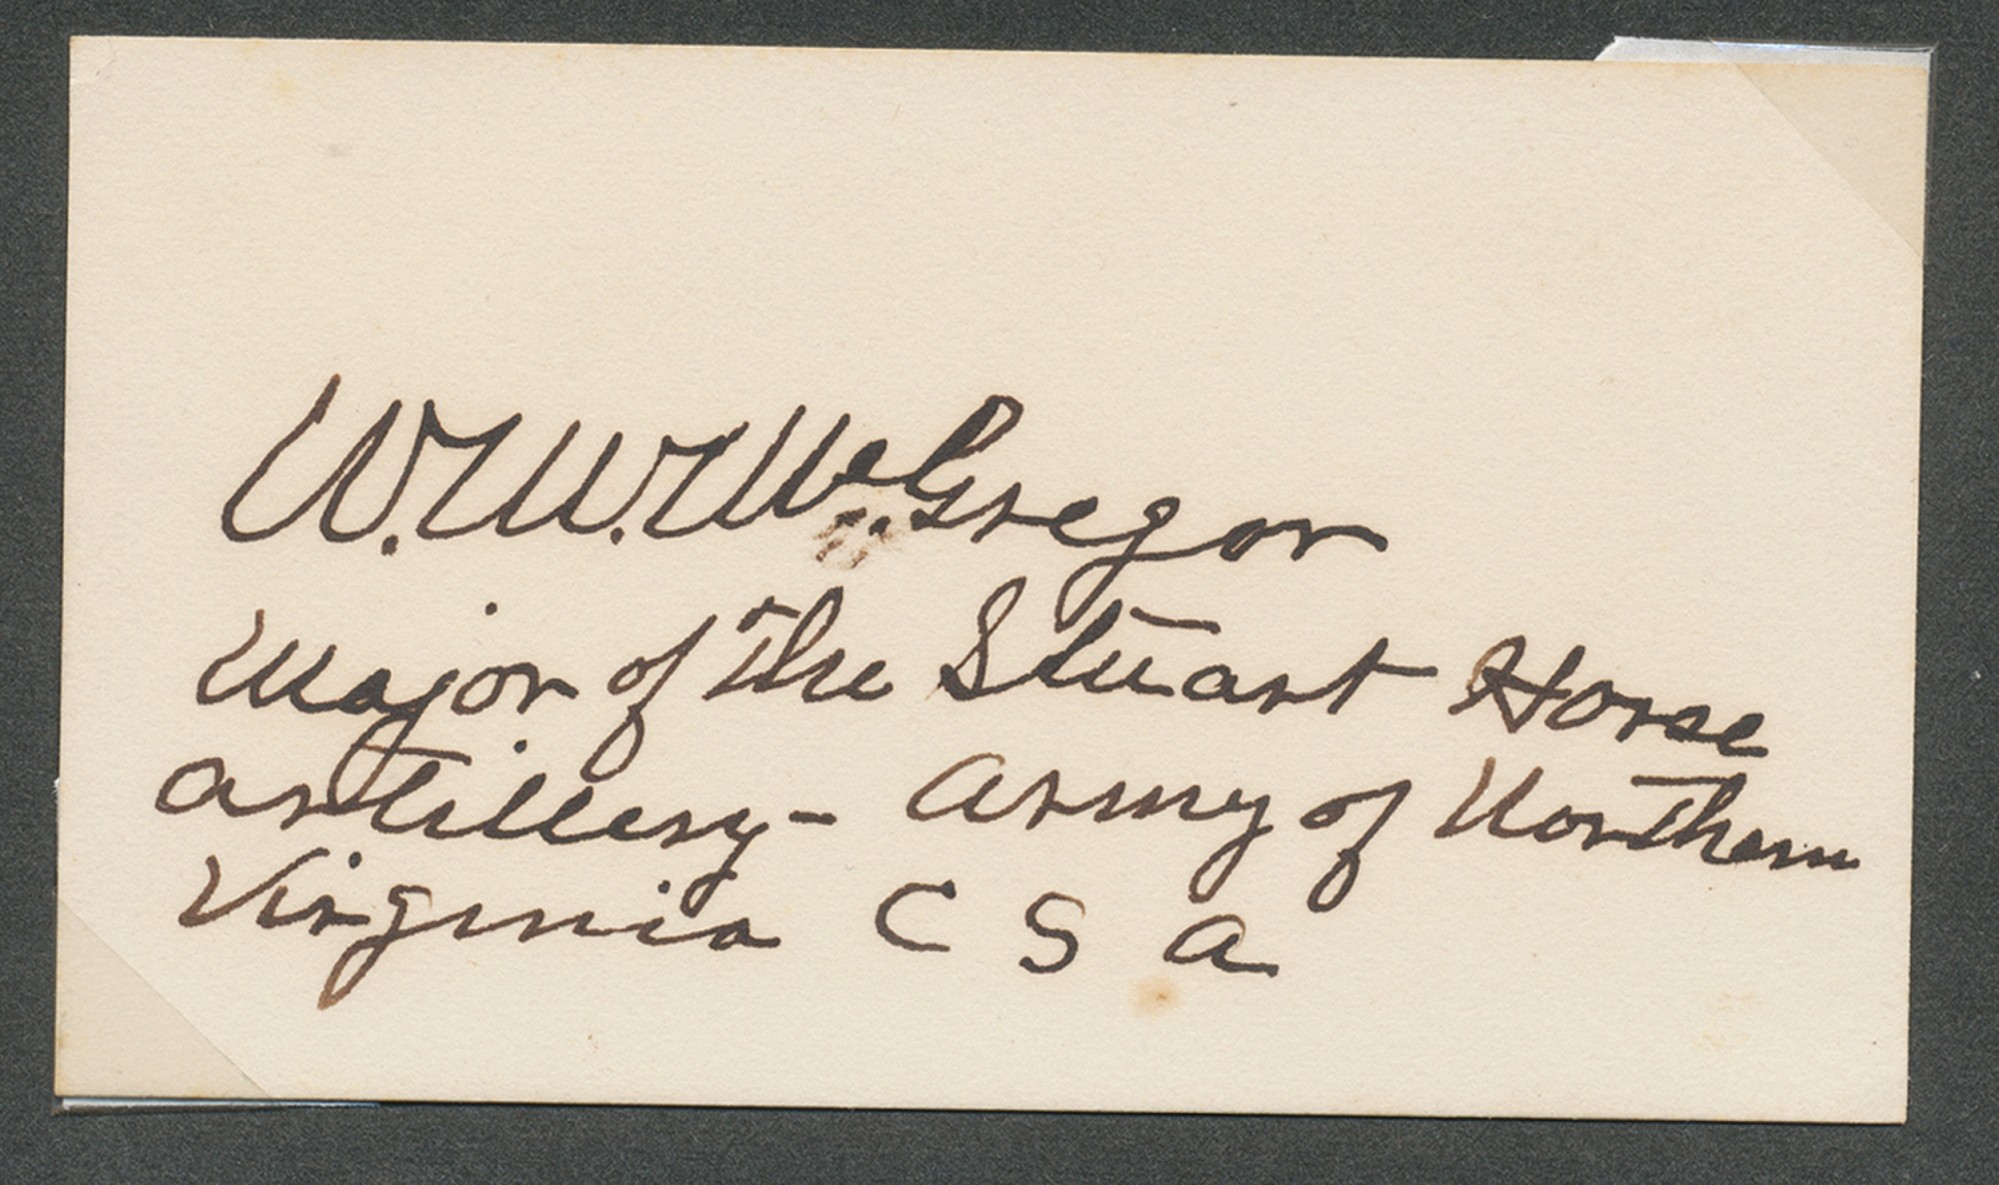 W. M. McGregor
Major of the Stuart Horse
Artillery - Army of Northern
Virginia C S A